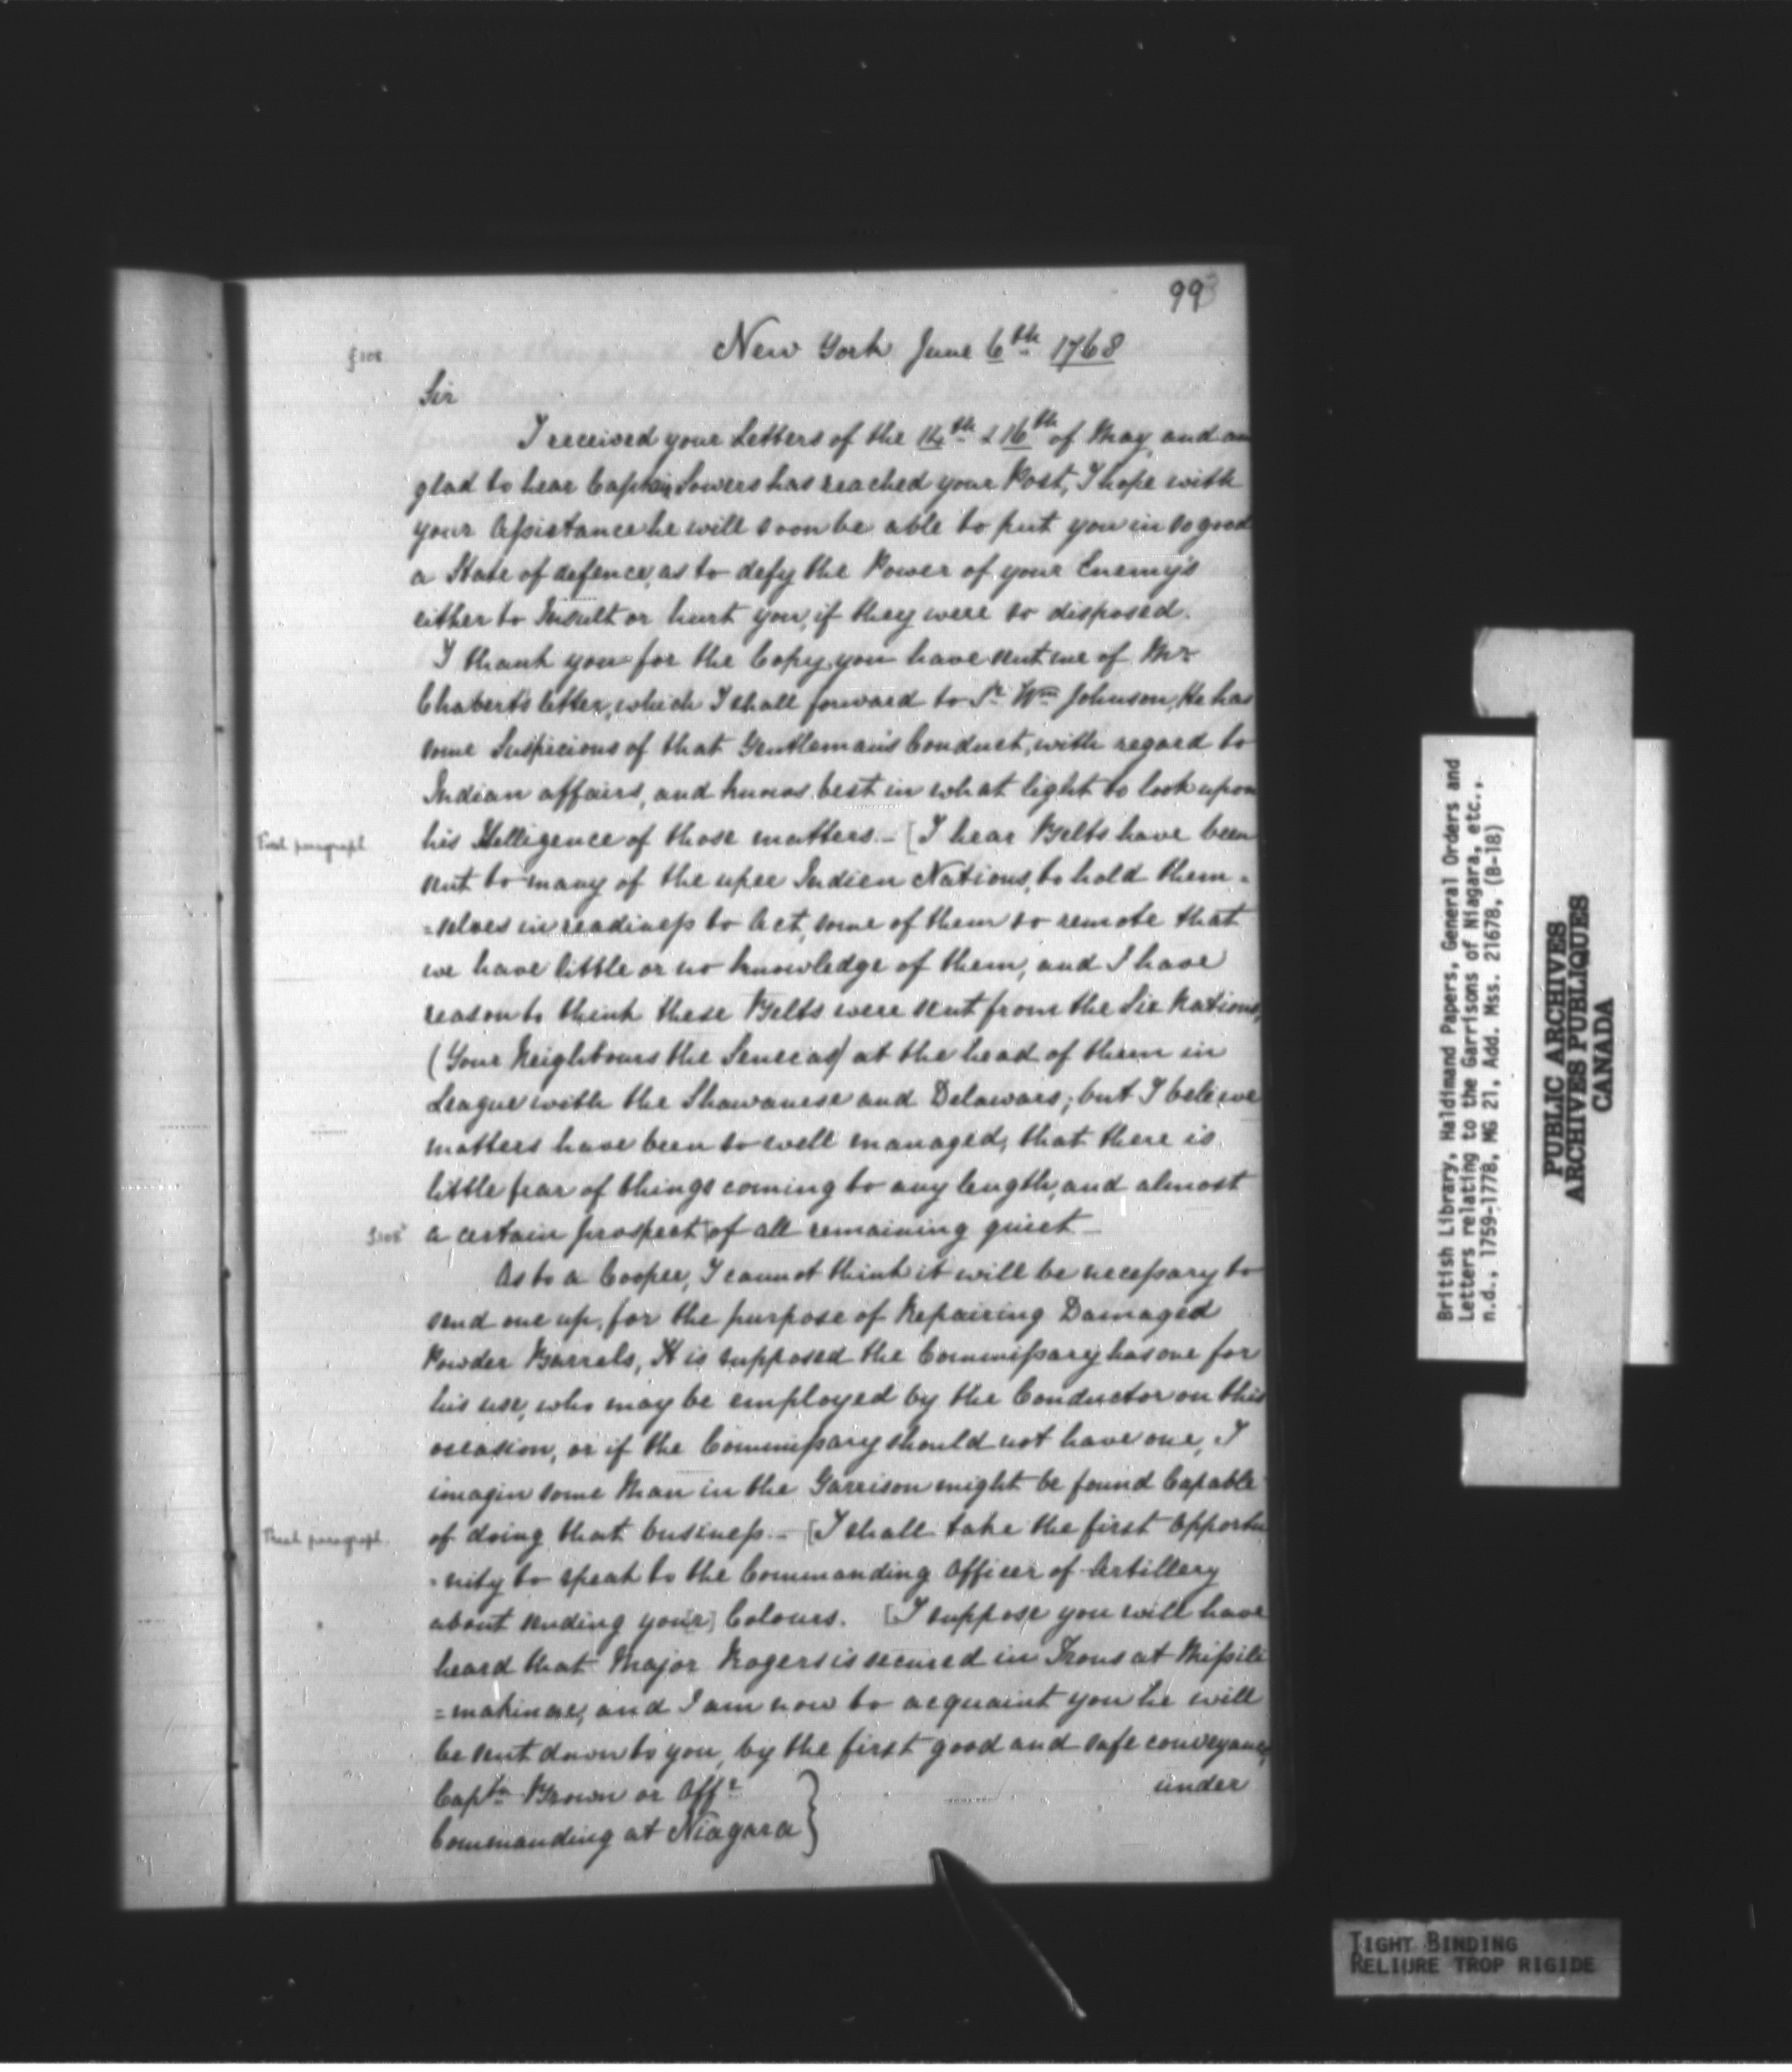 99
New York June 6th 1768
Sir
I received your Letters of the 14th & 16th of May, and am
glad to hear Captain Sowers has reached your Post, I hope with
your Assistance he will soon be able to put you in so good
a State of defence, as to defy the Power of your Enemy's
either to Insult or hurt you, if they were so disposed.
I thank you for the Copy you have sent me of Mr
Chabert's letter, which I shall forward to Sr Wm Johnson, He has
some Suspicions of that Gentleman's Conduct, with regard to
Indian affairs, and knows best in what light to look upon
his Itelligence of those matters. - [I hear Belts have been
sent to many of the uper Indien Nations, to hold them=
=selves in readiness to Act, some of them so remote that
we have little or no knowledge of them, and I have
reason to think these Belts were sent from the Six Nations,
(Your Neighbours the Senecas) at the head of them in
League with the Shawanese and Delawars; but I believe
matters have been so well managed, that there is
little fear of things coming to any length, and almost
a certain prospect of all remaining quiet -
As to a Cooper, I cannot think it will be necessary to
send one up, for the purpose of Repairing Damaged
Powder Barrels, It is supposed the Commissary has one for
his use, who may be employed by the Conductor on this
occasion, or if the Commissary should not have one, I
imagin some Man in the Garrison might be found Capable
of doing that business. - [I shall take the first Opportu
=nity to speak to the Commanding Officer of Artillery
about sending your] Colours. [I suppose you will have
heard that Major Rogers is secured in Irons at Missili
=makinac, and I am now to acquaint you he will
be sent down to you, by the first good and safe conveyance,
under
Captn Brown or Offr
Commanding at Niagara}
British Library, Haldimand Papers, General Orders and
Letters relating to the Garrisons of Niagara, etc.,
n.d., 1759-1778, MG 21, Add. Mss. 21678, (B-18)
PUBLIC ARCHIVES
ARCHIVES PUBLIQUES
CANADA
TIGHT BINDING
RELIURE TROP RIGIDE